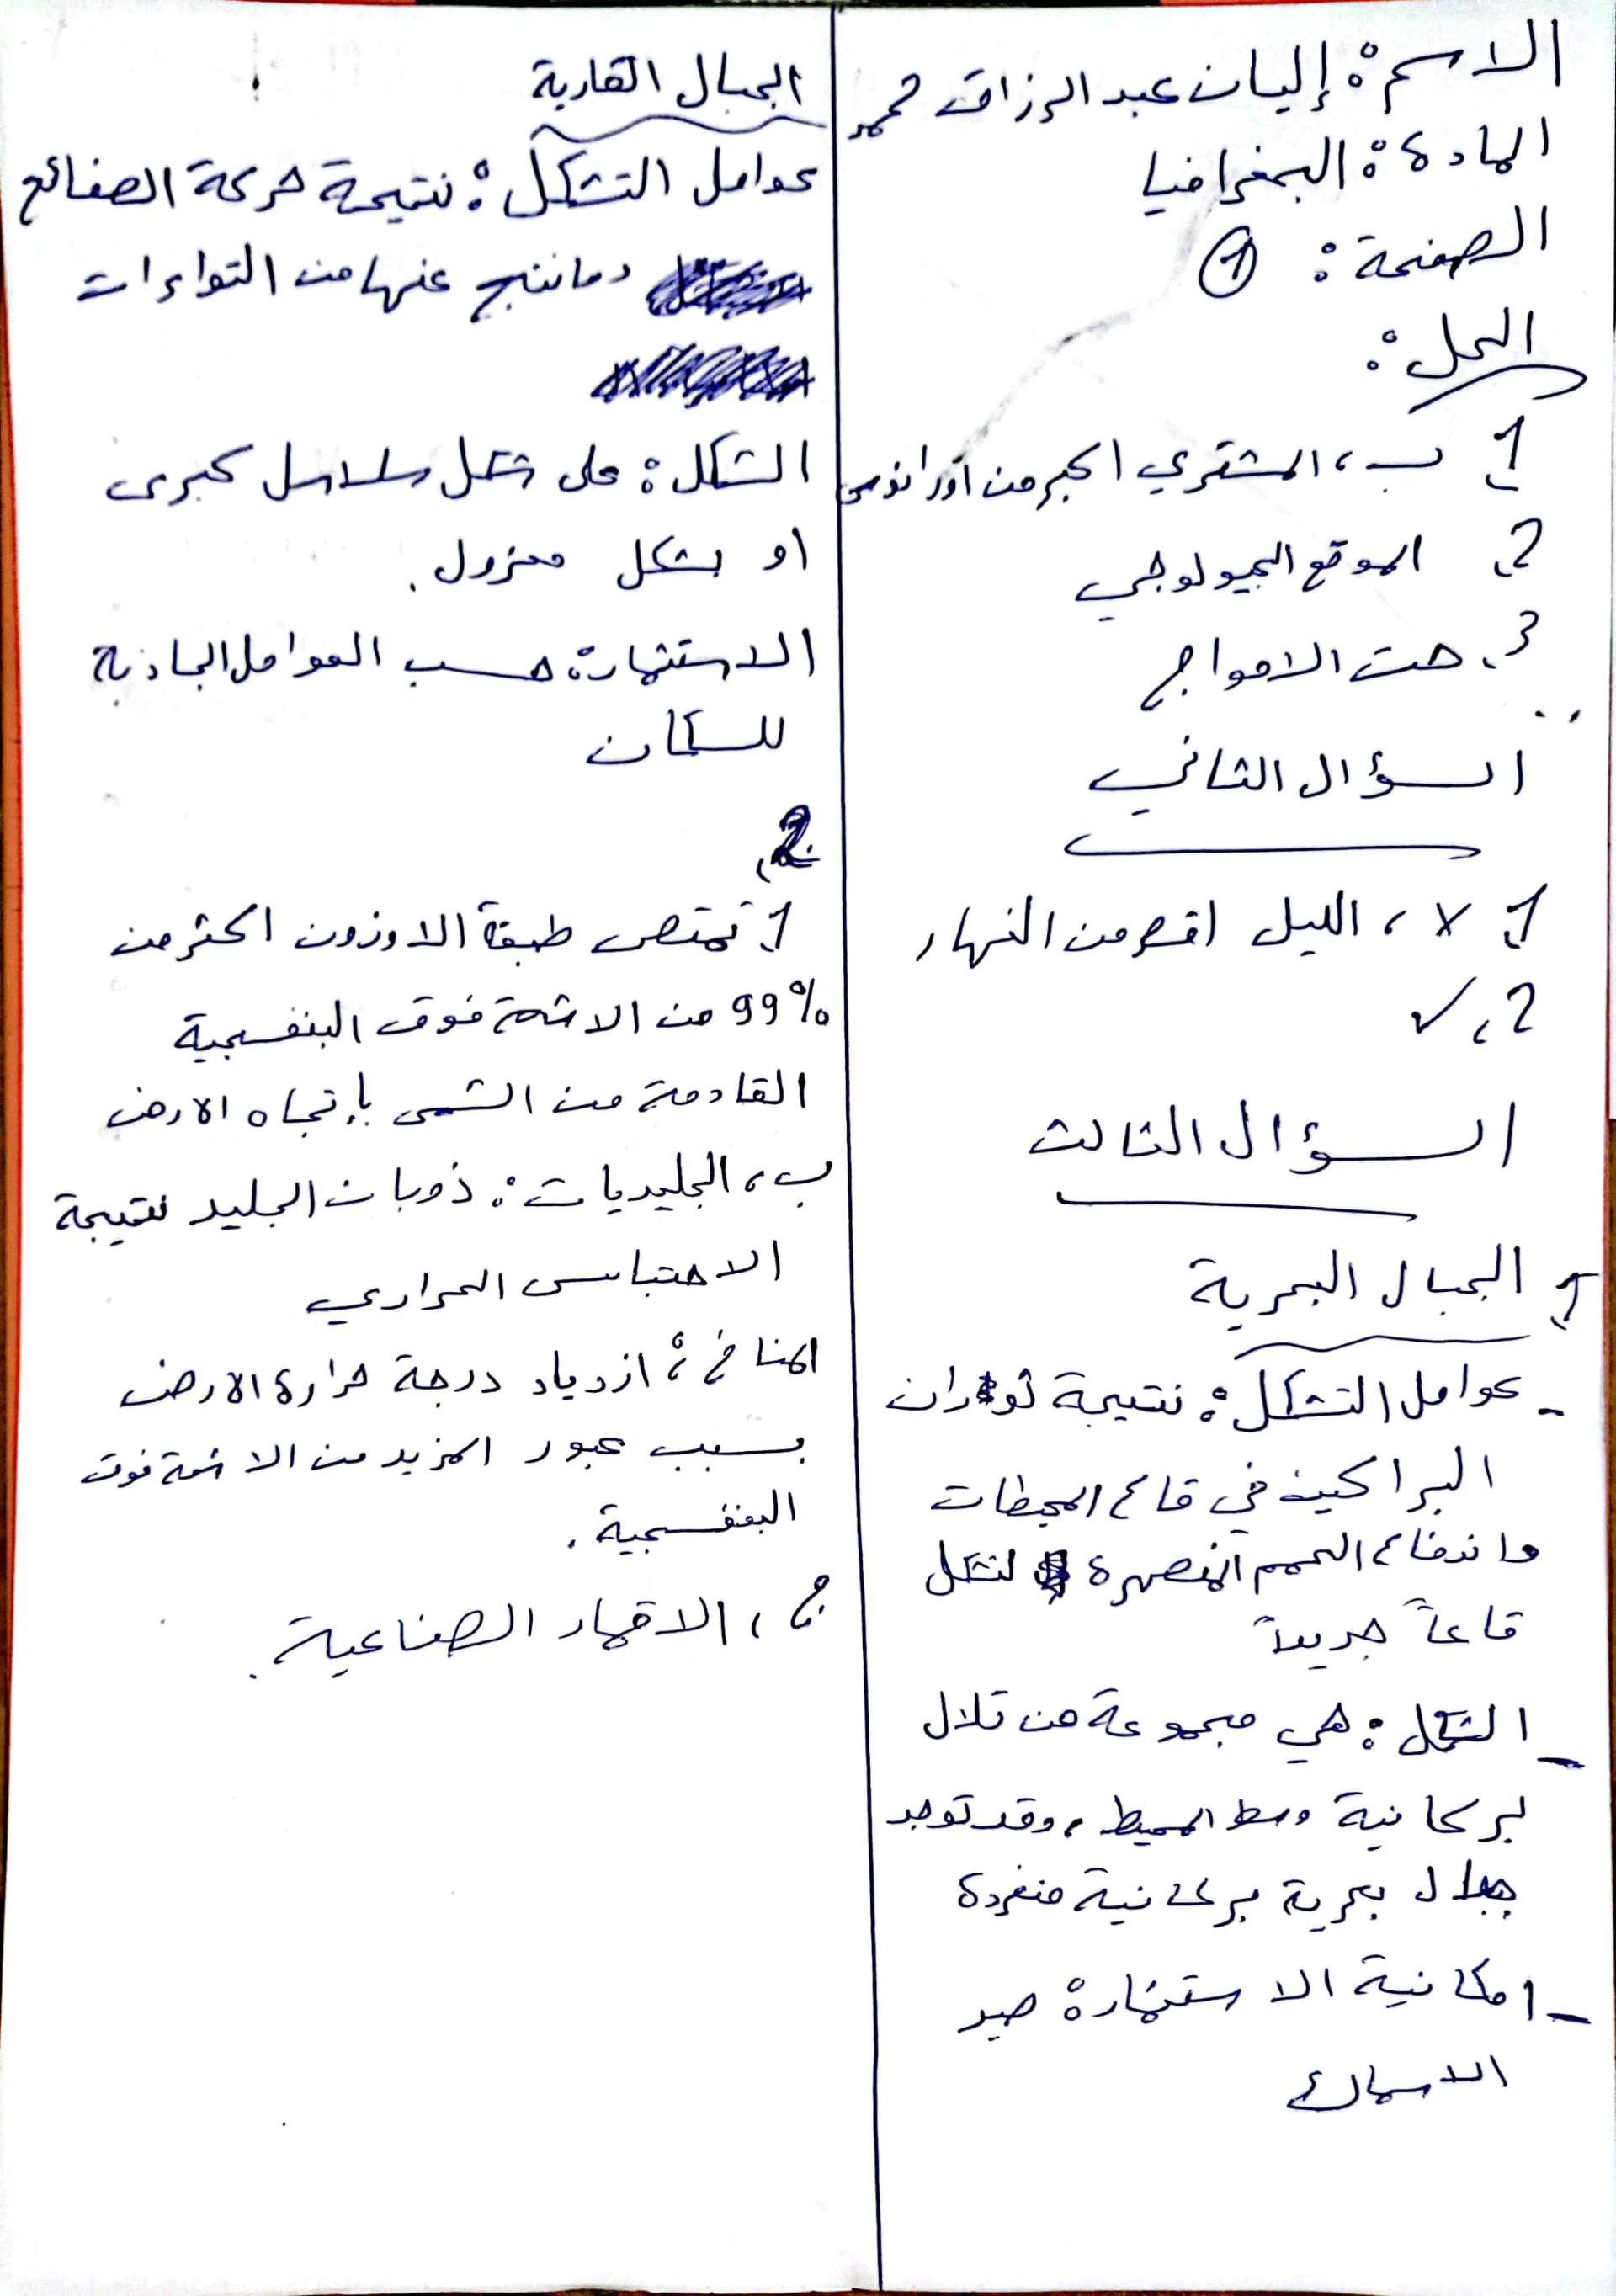 الاسم: إليان عبد الرزاق محمد
المادة: الجغرافيا
الصفحة: 1
الحل:
1. ب، المشتري اكبر من أورانوس
2. الموقع الجيولوجي
3. حت الامواج
السؤال الثاني
1. X، الليل اقصر من النهار
2. ✓
السؤال الثالث
1. الجبال البحرية
- عوامل التشكل: نتيجة ثوران
البراكين في قاع المحيطات
واندفاع الحمم المنصهرة لتشكل
قاعاً جديداً
- الشكل: هي مجموعة من تلال
بركانية وسط المحيط، وقد توجد
جبال بحرية بركانية منفردة
- امكانية الاستثمار: صيد
الاسماك
الجبال القارية
عوامل التشكل: نتيجة حركة الصفائح
وما ينتج عنها من التواءات
الشكل: على شكل سلاسل كبرى
او بشكل معزول.
الاستثمار: حسب العوامل الجاذبة
للسكان
2.
1. تمتص طبقة الاوزون اكثر من
99% من الاشعة فوق البنفسجية
القادمة من الشمس بإتجاه الارض
ب، الجليديات: ذوبان الجليد نتيجة
الاحتباس الحراري
المناخ: ازدياد درجة حرارة الارض
بسبب عبور المزيد من الاشعة فوق
البنفسجية.
ج، الاقمار الصناعية.